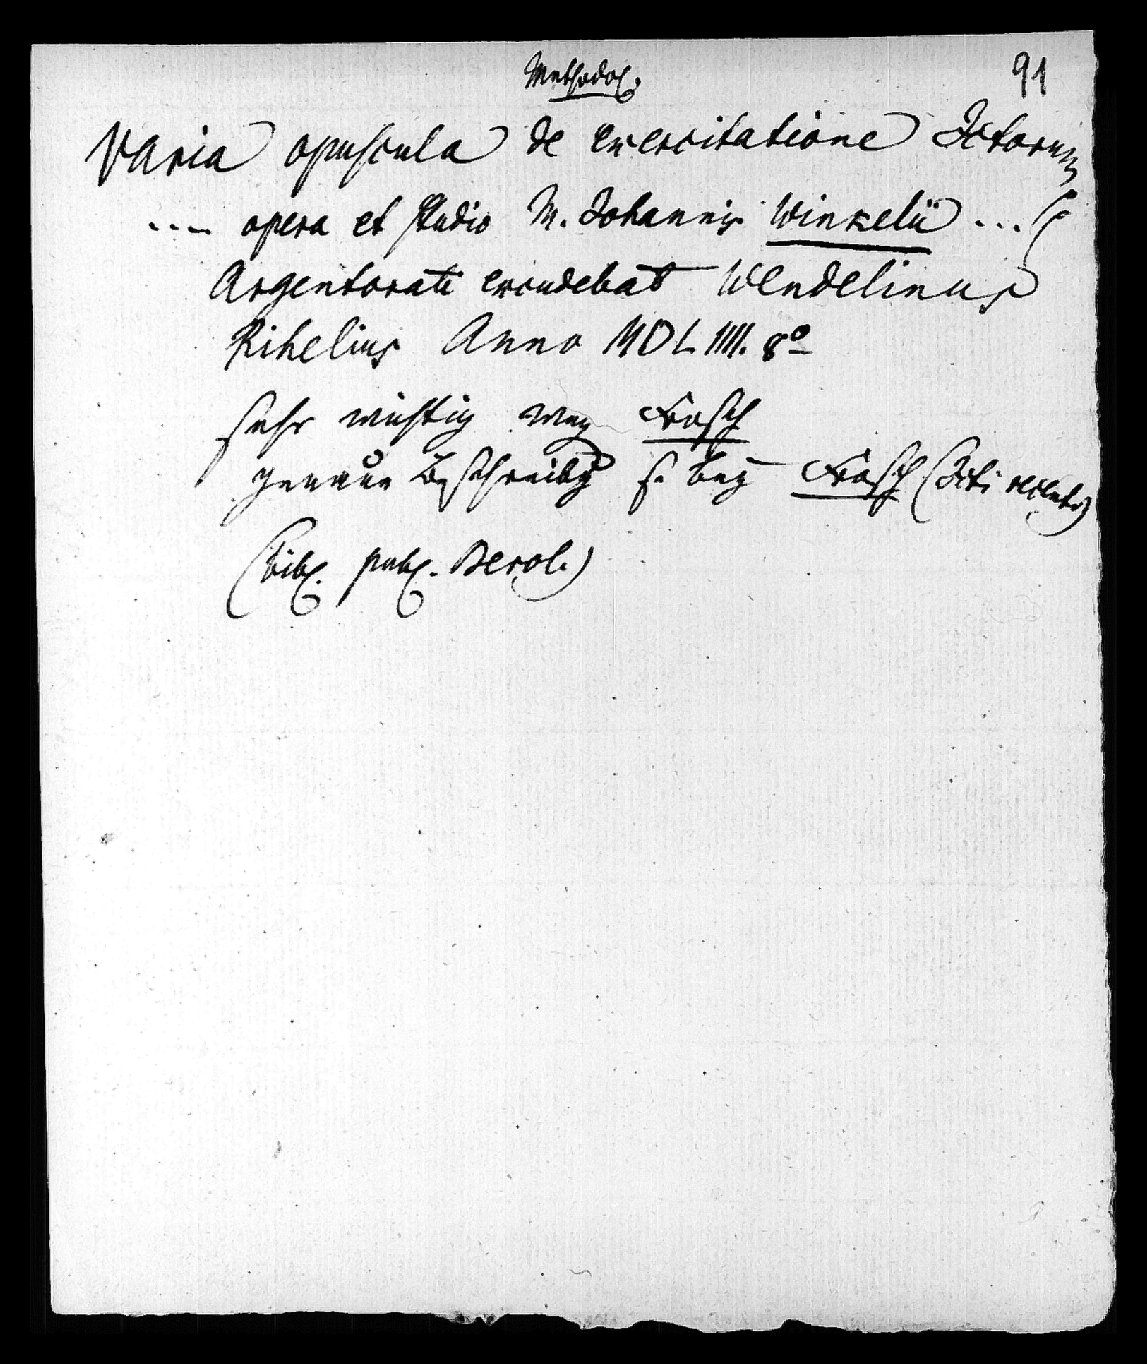 Methodol.
91
Varia opuscula de exercitatione Jctorum
.... opera et studio M. Johannis Winkelii ...
Argentorati excudebat Wendelinus
Rihelius Anno MDLIIII. 8º
sehr wichtig weg. Frosch
genaue Beschreibg s. bey Frosch (Jcti
(bibl. publ. Berol.)